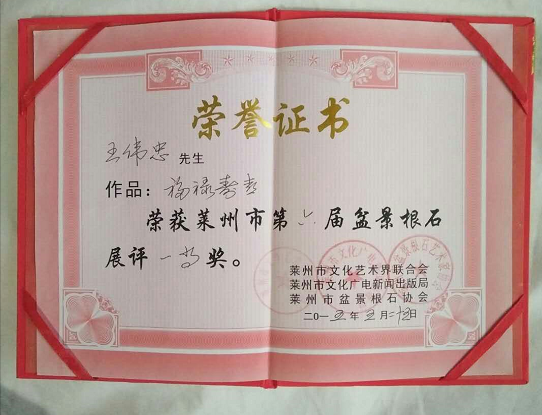 荣誉证书
王伟忠 先生
作品：福禄寿喜
荣获莱州市第六届盆景根石
展评一等奖。
莱州市文化艺术界联合会
莱州市文化广电新闻出版局
莱州市盆景根石协会
二〇一五年五月二十五日